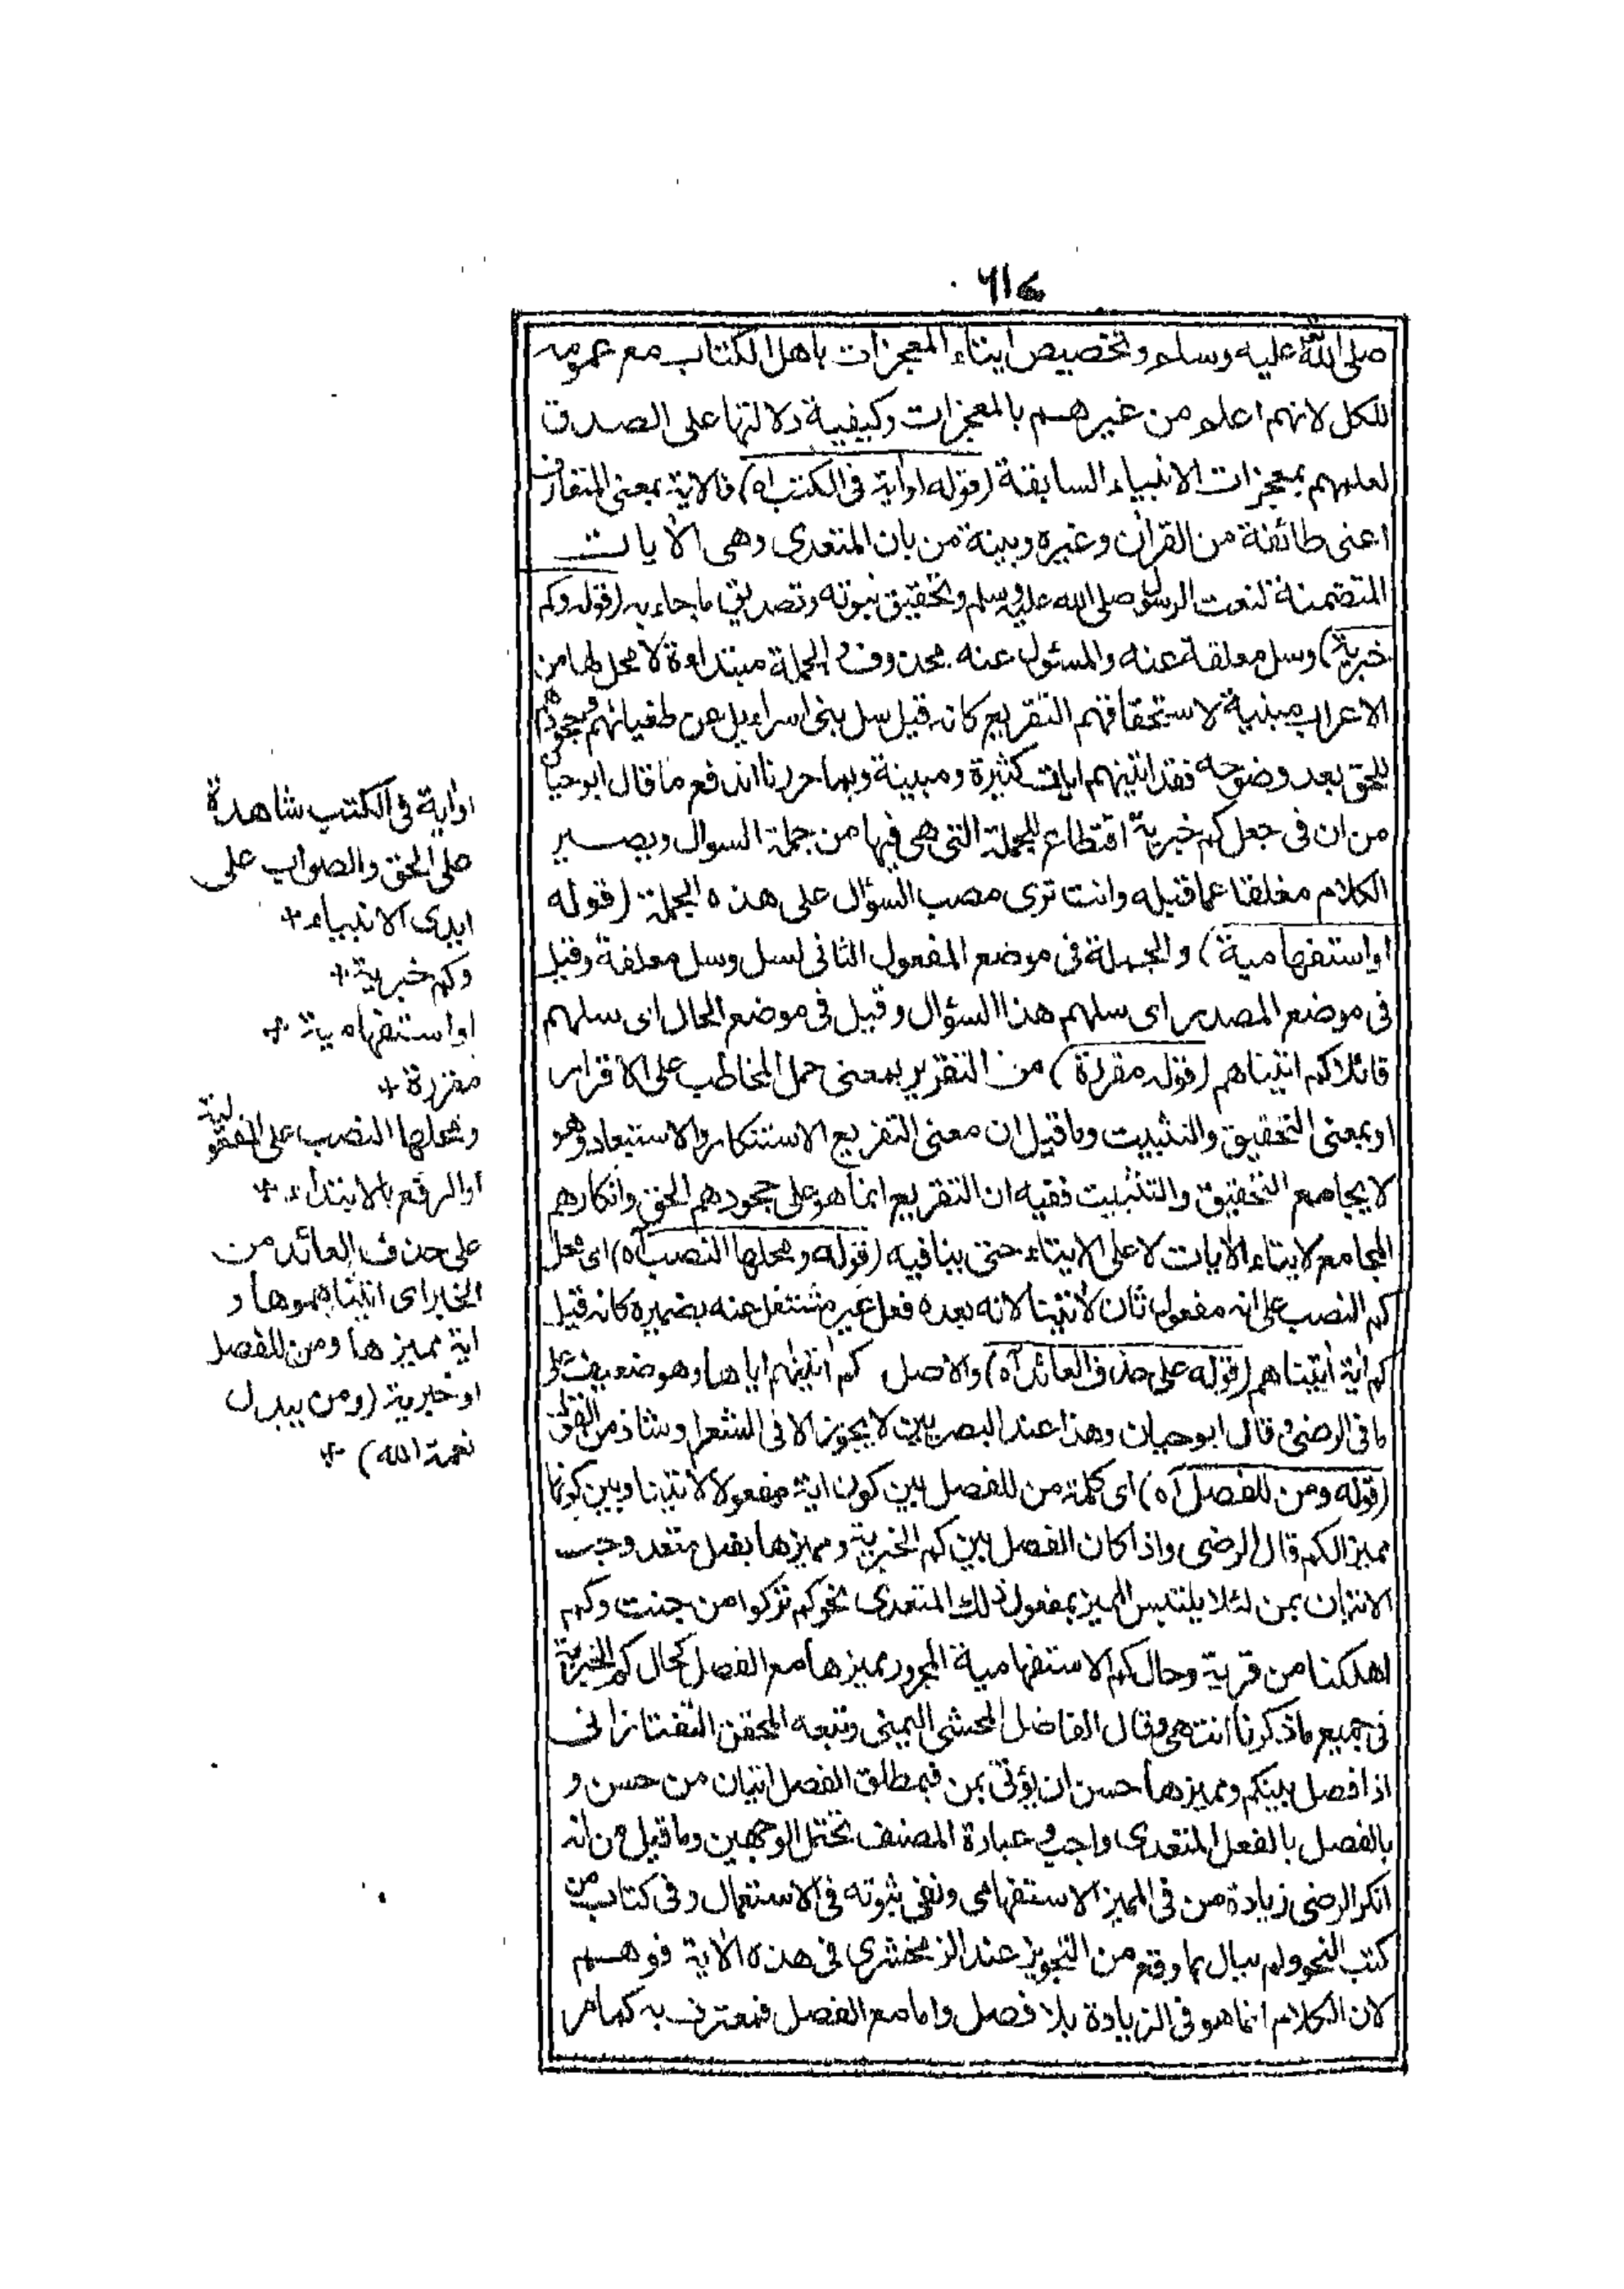 ٦١٤
صلى الله عليه وسلم وتخصيص ايتاء المعجزات باهل الكتاب مع عمومه
للكل لانهم اعلم من غيرهم بالمعجزات وكيفية دلالتها على الصدق
لعلمهم بمعجزات الانبياء السابقة (قوله اواية فى الكتب اه) فالاية بمعنى المتعارف
اعنى طائفة من القران وغيره وبينة من بان المتعدى وهى الايات
المتضمنة لنعت الرسول صلى الله عليه وسلم وتحقيق نبوته وتصديق ما جاء به (قوله وكم
خبرية) وسل معلقة عنه والمسئول عنه محذوف والجملة مبتداءة لا محل لها من
الاعراب مبنية لاستحقاقهم التقريع كانه قيل سل بنى اسراءيل عن طغيانهم وجحودهم
للحق بعد وضوحه فقد اتينهم ايات كثيرة ومبينة وبما حررنا اندفع ما قال ابوحيان
من ان فى جعل كم خبرية اقتطاع للجملة التى هى فيها من جملة السوال ويصير
الكلام مفلقا عما قبله وانت ترى مصب السؤال على هذه الجملة (قوله
اواستفهامية) والجملة فى موضع المفعول الثانى لسل وسل معلقة وقيل
فى موضع المصدر اى سلهم هذا السؤال وقيل فى موضع الحال اى سلهم
قائلا كم اتيناهم (قوله مقررة) من التقرير بمعنى حمل المخاطب على الاقرار
اوبمعنى التحقيق والتثبيت وما قيل ان معنى التقريع الاستنكار والاستبعاد وهو
لا يجامع التحقيق والتثبيت ففيه ان التقريع انما هو على جحودهم الحق وانكارهم
المجامع لايتاء الايات لا على الايتاء حتى ينافيه (قوله ومحلها النصب اه) اى محل
كم النصب على انه مفعول ثان لاتينا لانه بعده فعل غير مشتغل عنه بضميره كانه قيل
كم اية اتيناهم (قوله على حذف العائد اه) والاصل كم اتيناهم اياها وهو ضعيف على
ما فى الرضى قال ابوحيان وهذا عند البصريين لا يجوز الا فى الشعر او شاذ من القران
(قوله ومن للفصل اه) اى كلمة من للفصل بين كون اية مفعولا لاتينا وبين كونها
مميز الكم قال الرضى واذا كان الفصل بين كم الخبرية ومميزها بفعل متعد وجب
الاتيان بمن لئلا يلتبس المميز بمفعول ذلك المتعدى نحو كم تركوا من جنت وكم
اهلكنا من قرية وحال كم الاستفهامية المجرور مميزها مع الفصل كحال كم الخبرية
فى جميع ما ذكرنا انتهى وقال الفاضل المحشى اليمنى وتبعه المحقق التفتازانى
اذا فصل بين كم ومميزها حسن ان يؤتى بمن فبمطلق الفصل اتيان من حسن و
بالفصل بالفعل المتعدى واجب وعبارة المصنف تحتمل الوجهين وما قيل من انه
انكر الرضى زيادة من فى المميز الاستفهامى ونفى ثبوته فى الاستعمال وفى كتاب من
كتب النحو ولم يبال بما وقع من التجويز عند الزمخشرى فى هذه الاية فوهم
لان الكلام انما هو فى الزيادة بلا فصل واما مع الفصل فمعترف به كما مر
اواية فى الكتب شاهدة
على الحق والصواب على
ايدى الانبياء +
وكم خبرية +
اواستفهامية +
مقررة +
ومحلها النصب على المفعولية
اوالرفع بالابتداء +
على حذف العائد من
الخبر اى اتيناهموها و
اية مميزها ومن للفصل
اوخبرية (ومن يبدل
نعمة الله) +